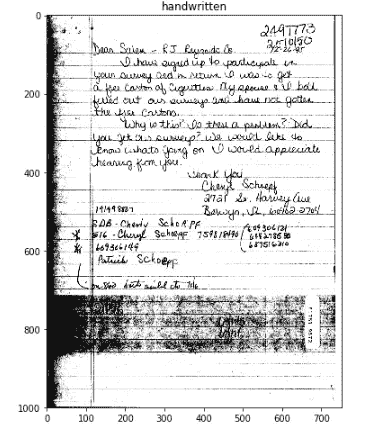 handwritten
2497773
Dear Sirs - RJ Reynolds Co.
I have signed up to participate in
your survey and in return I was to get
a free Carton of Cigarettes. My spouse & I both
filled out our surveys and have not gotten
the free Cartons.
Why is this? Is there a problem? Did
you get our surveys? We would like to
know whats going on I would appreciate
hearing from you.
Thank You
Cheryl Schoepf
2721 So. Harvey Ave
Berwyn, IL. 60402 2704
Cheryl SchoEPF
609306144
Patrick SchoEpf
0
200
400
600
800
1000
0 100 200 300 400 500 600 700